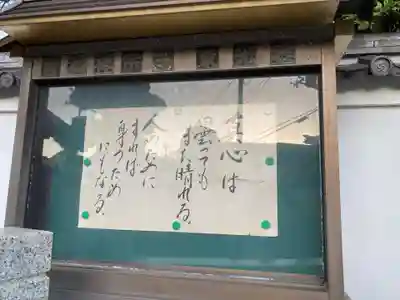 心は
曇っても
また晴れる
人のために
すれば
身のため
にもなる